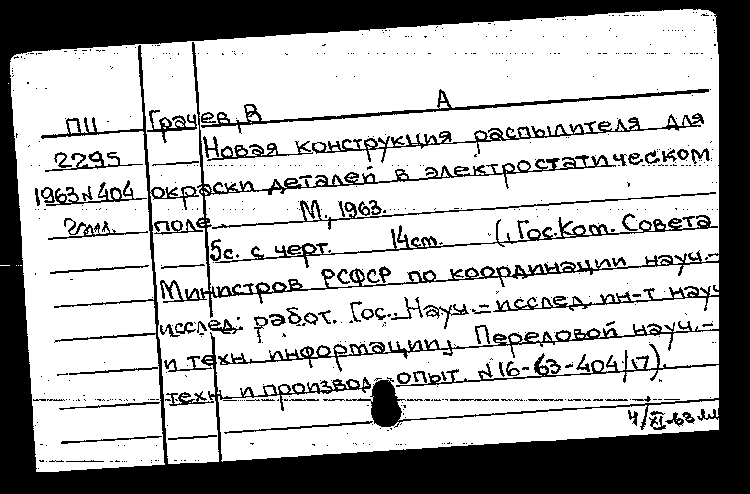 П11 Грачев, В А
2295 Новая конструкция распылителя для
1963 N 404 окраски деталей в электростатическом
2экз. поле. М., 1963.
5с. с черт. 14см. (Гос. Ком. Совета
Министров РСФСР по координации науч.-
исслед. работ. Гос. Науч.-исслед. ин-т науч
и техн. информации. Передовой науч.-
техн. и производ. опыт. N 16-63-404/17).
4/XI-63